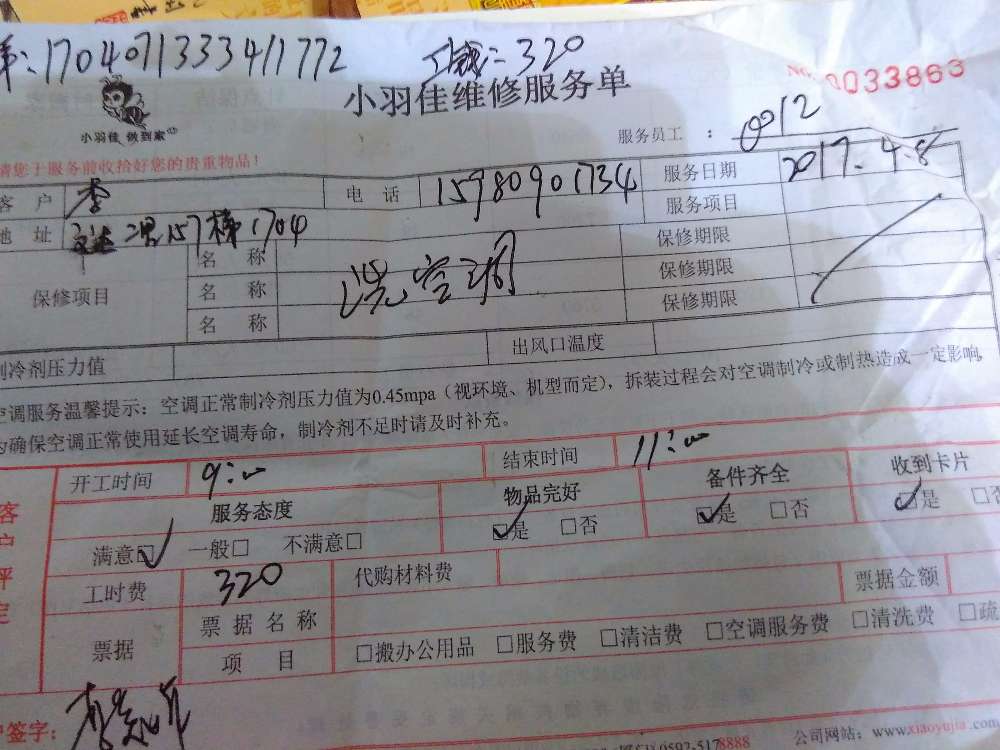 单:1704071333411772 工钱:320
小羽佳维修服务单 No. 0033863
小羽佳 做到家 服务员工 : 0012
请您于服务前收拾好您的贵重物品!
客 户 李 电 话 15980901734 服务日期 2017.4.8
地 址 二里157梯1704 服务项目
保修项目 名 称 洗空调 保修期限
名 称 保修期限
名 称 保修期限
制冷剂压力值 出风口温度
空调服务温馨提示:空调正常制冷剂压力值为0.45mpa(视环境、机型而定),拆装过程会对空调制冷或制热造成一定影响,
为确保空调正常使用延长空调寿命,制冷剂不足时请及时补充。
客户评定
开工时间 9:00 结束时间 11:00
服务态度 物品完好 备件齐全 收到卡片
满意☑ 一般□ 不满意□ ☑是 □否 ☑是 □否 ☑是 □否
工时费 320 代购材料费 票据金额
票据 票据名称
项 目 □搬办公用品 □服务费 □清洁费 □空调服务费 □清洗费 □疏
户签字:
0592-5178888 公司网站:www.xiaoyujia.com